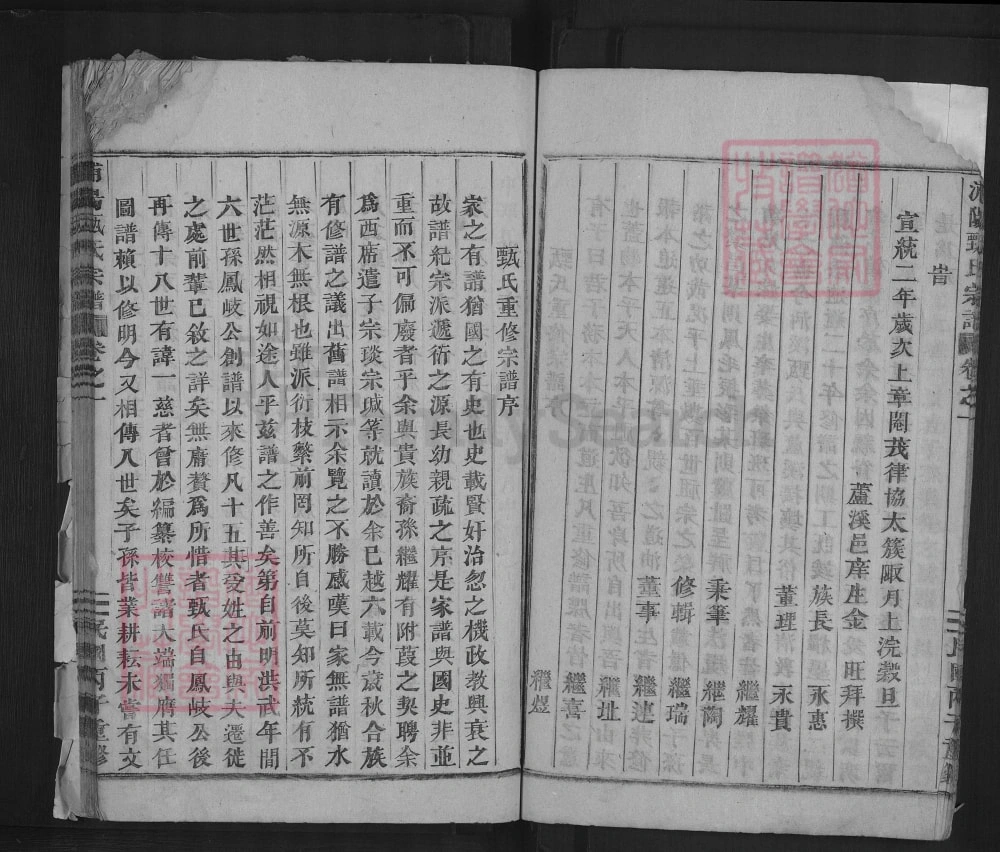 宗譜
卷之一
昔
宣統二年歲次上章閹茂律協太簇陬月上浣穀旦
蘆溪邑庠生金旺拜撰
族長永惠
董理永貴
秉筆繼耀
繼蘭
修輯繼瑞
董事繼連
繼址
繼喜
繼煜
甄氏重修宗譜序
家之有譜猶國之有史也史載賢奸治忽之機政教興衰之
故譜紀宗派遞衍之源長幼親疏之序是家譜與國史非並
重而不可偏廢者乎余與貴族裔孫繼耀有附葭之契聘余
為西席遣子宗琰宗瑊等就讀於余已越六載今歲秋合族
有修譜之議出舊譜相示余覽之不勝感嘆曰家無譜猶水
無源木無根也雖派衍枝繁前罔知所自後莫知所統有不
茫茫然相視如途人乎茲譜之作善矣第自前明洪武年間
六世孫鳳岐公創譜以來修凡十五其受姓之由與夫遷徙
之處前輩已敘之詳矣無庸贅為所惜者甄氏自鳳岐公後
再傳十八世有諱一慈者曾於編纂校讐諸大端獨膺其任
圖譜賴以修明今又相傳八世矣子孫皆業耕耘未嘗有文
宗譜
卷之一
民國丙子重修